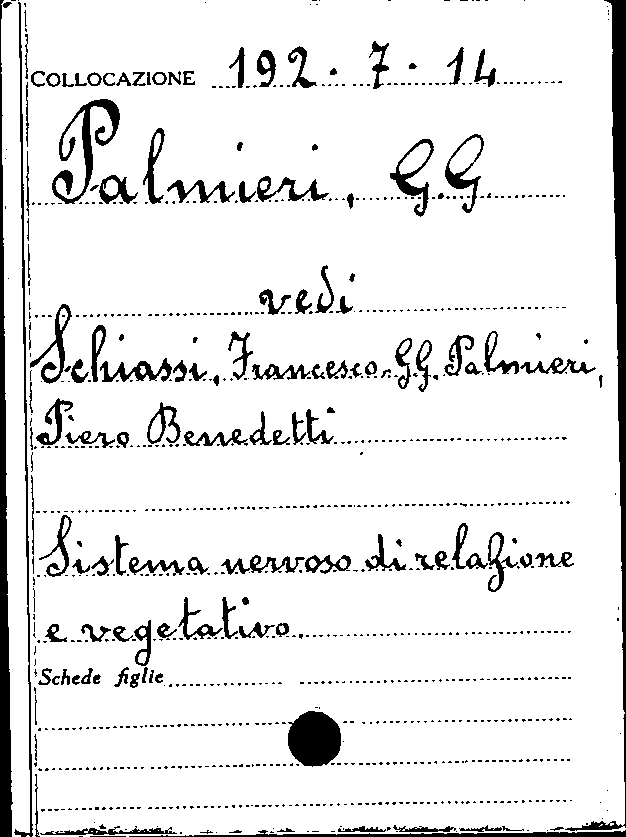 COLLOCAZIONE 192.7.14
Palmieri, G.G.
vedi
Schiassi, Francesco-G.G. Palmieri,
Piero Benedetti
Sistema nervoso di relazione
e vegetativo.
Schede figlie